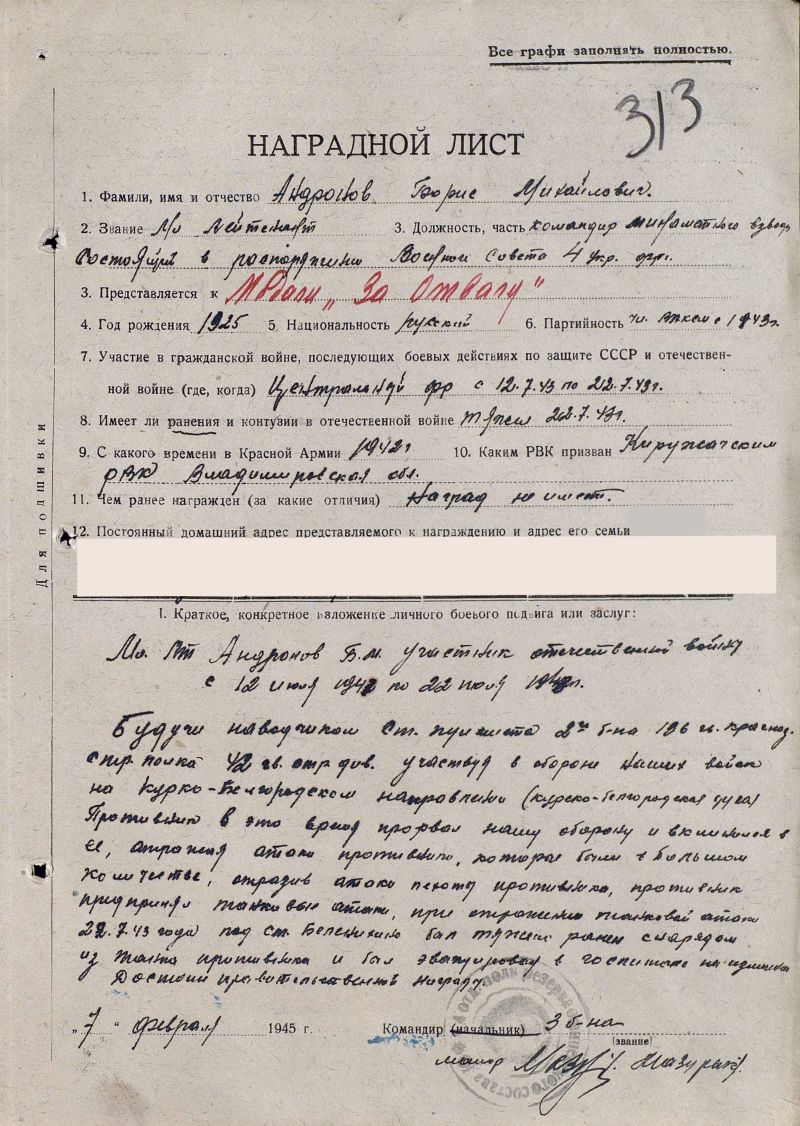 Все графи заполнять полностью.
313
НАГРАДНОЙ ЛИСТ
1. Фамили, имя и отчество Андронов Борис Михайлович.
2. Звание Мл лейтенант 3. Должность, часть командир минометного взвода
Состоящий в распоряжении Военного Совета 4 Укр. фр.
3. Представляется к Медали „За Отвагу"
4. Год рождения 1925 5. Национальность русский 6. Партийность чл. ВЛКСМ с 1943г.
7. Участие в гражданской войне, последующих боевых действиях по защите СССР и отечествен-
ной войне (где, когда) Центральной фр с 12.7.43 по 22.7.43г.
8. Имеет ли ранения и контузии в отечественной войне тяжел 22.7.43г.
9. С какого времени в Красной Армии 1942г 10. Каким РВК призван Киржачским
РВК Владимировская обл.
11. Чем ранее награжден (за какие отличия) Наград не имеет.
12. Постоянный домашний адрес представляемого к награждению и адрес его семьи
Для подшивки
I. Краткое, конкретное изложение личного боевого подвига или заслуг:
Мл. Лт Андронов Б.М. участник отечественной войны
с 12 июля по 22 июля
Будучи наводчиком ст. 2го б-на 136 гв. краснод.
стр. полка 42 гв. стр. див. участвуя в обороне наших войск
на Курко-Белгородском направлении (Курско-белгородская дуга)
Противник в это время прорвал нашу оборону и вклинился в
ее, отражая атаки противника, которые были в большом
количестве, отразив атаки пехоты противника, противник
предпринял танковые атаки, при отражении танковой атаки
22.7.43 года под ст. Беленихино был тяжело ранен снарядом
из танка противника и был эвакуирован в госпиталь на излечение
Достоин правительственной награды.
„7" февраля 1945 г. Командир (начальник) 3 б-на
(звание)
майор